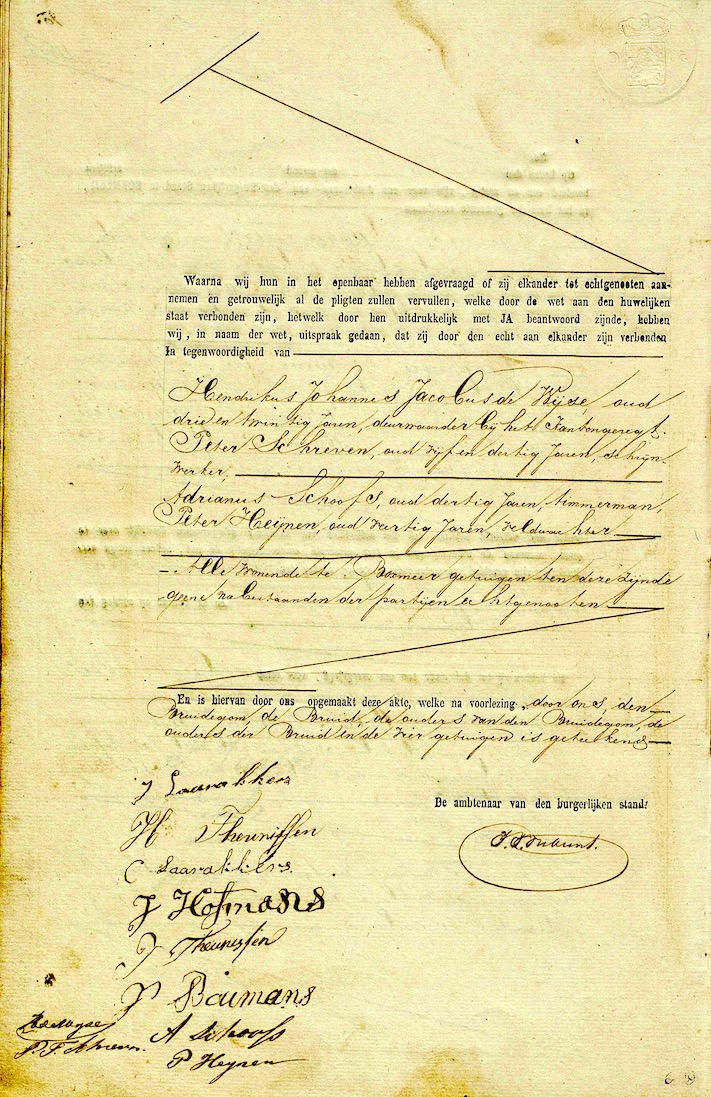 Waarna wij hun in het openbaar hebben afgevraagd of zij elkander tot echtgenooten aan-
nemen en getrouwelijk al de pligten zullen vervullen, welke door de wet aan den huwelijken
staat verbonden zijn, hetwelk door hen uitdrukkelijk met JA beantwoord zijnde, hebben
wij, in naam der wet, uitspraak gedaan, dat zij door den echt aan elkander zijn verbonden
In tegenwoordigheid van
Hendrikus Johannes Jacobus de Wijse, oud
drie en twintig Jaren, deurwaarder bij het Kantongeregt.
Peter Schreven, oud vijf en dertig Jaren, schrijn-
werker,
Adrianus Schoofs, oud dertig Jaren, timmerman,
Peter Heijnen, oud veertig Jaren, veldwachter
Alle wonende te Boxmeer getuigen ten deze zijnde
geene nabestaanden der partijen echtgenooten
En is hiervan door ons opgemaakt deze akte, welke na voorlezing door ons, den
Bruidegom, de Bruid, de ouders van den Bruidegom, de
ouders der Bruid en de vier getuigen is geteekend
De ambtenaar van den burgerlijken stand:
J Laarakkers
H. Theunissen
C Laarakkers.
J Hofmans
J Theunissen
P Boumans
A Schoofs
P Heynen